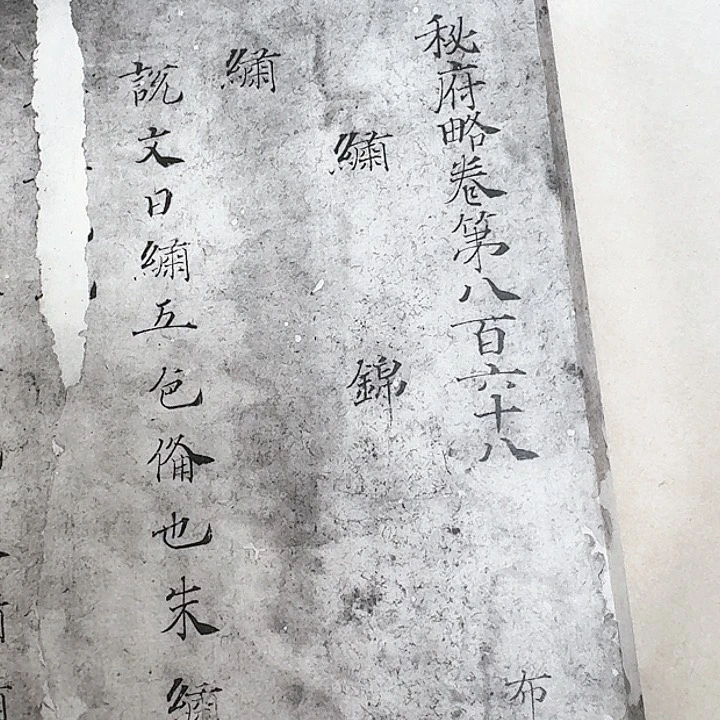 秘府略卷第八百六十八
布
繡 錦
繡
說文曰繡五色備也朱繡